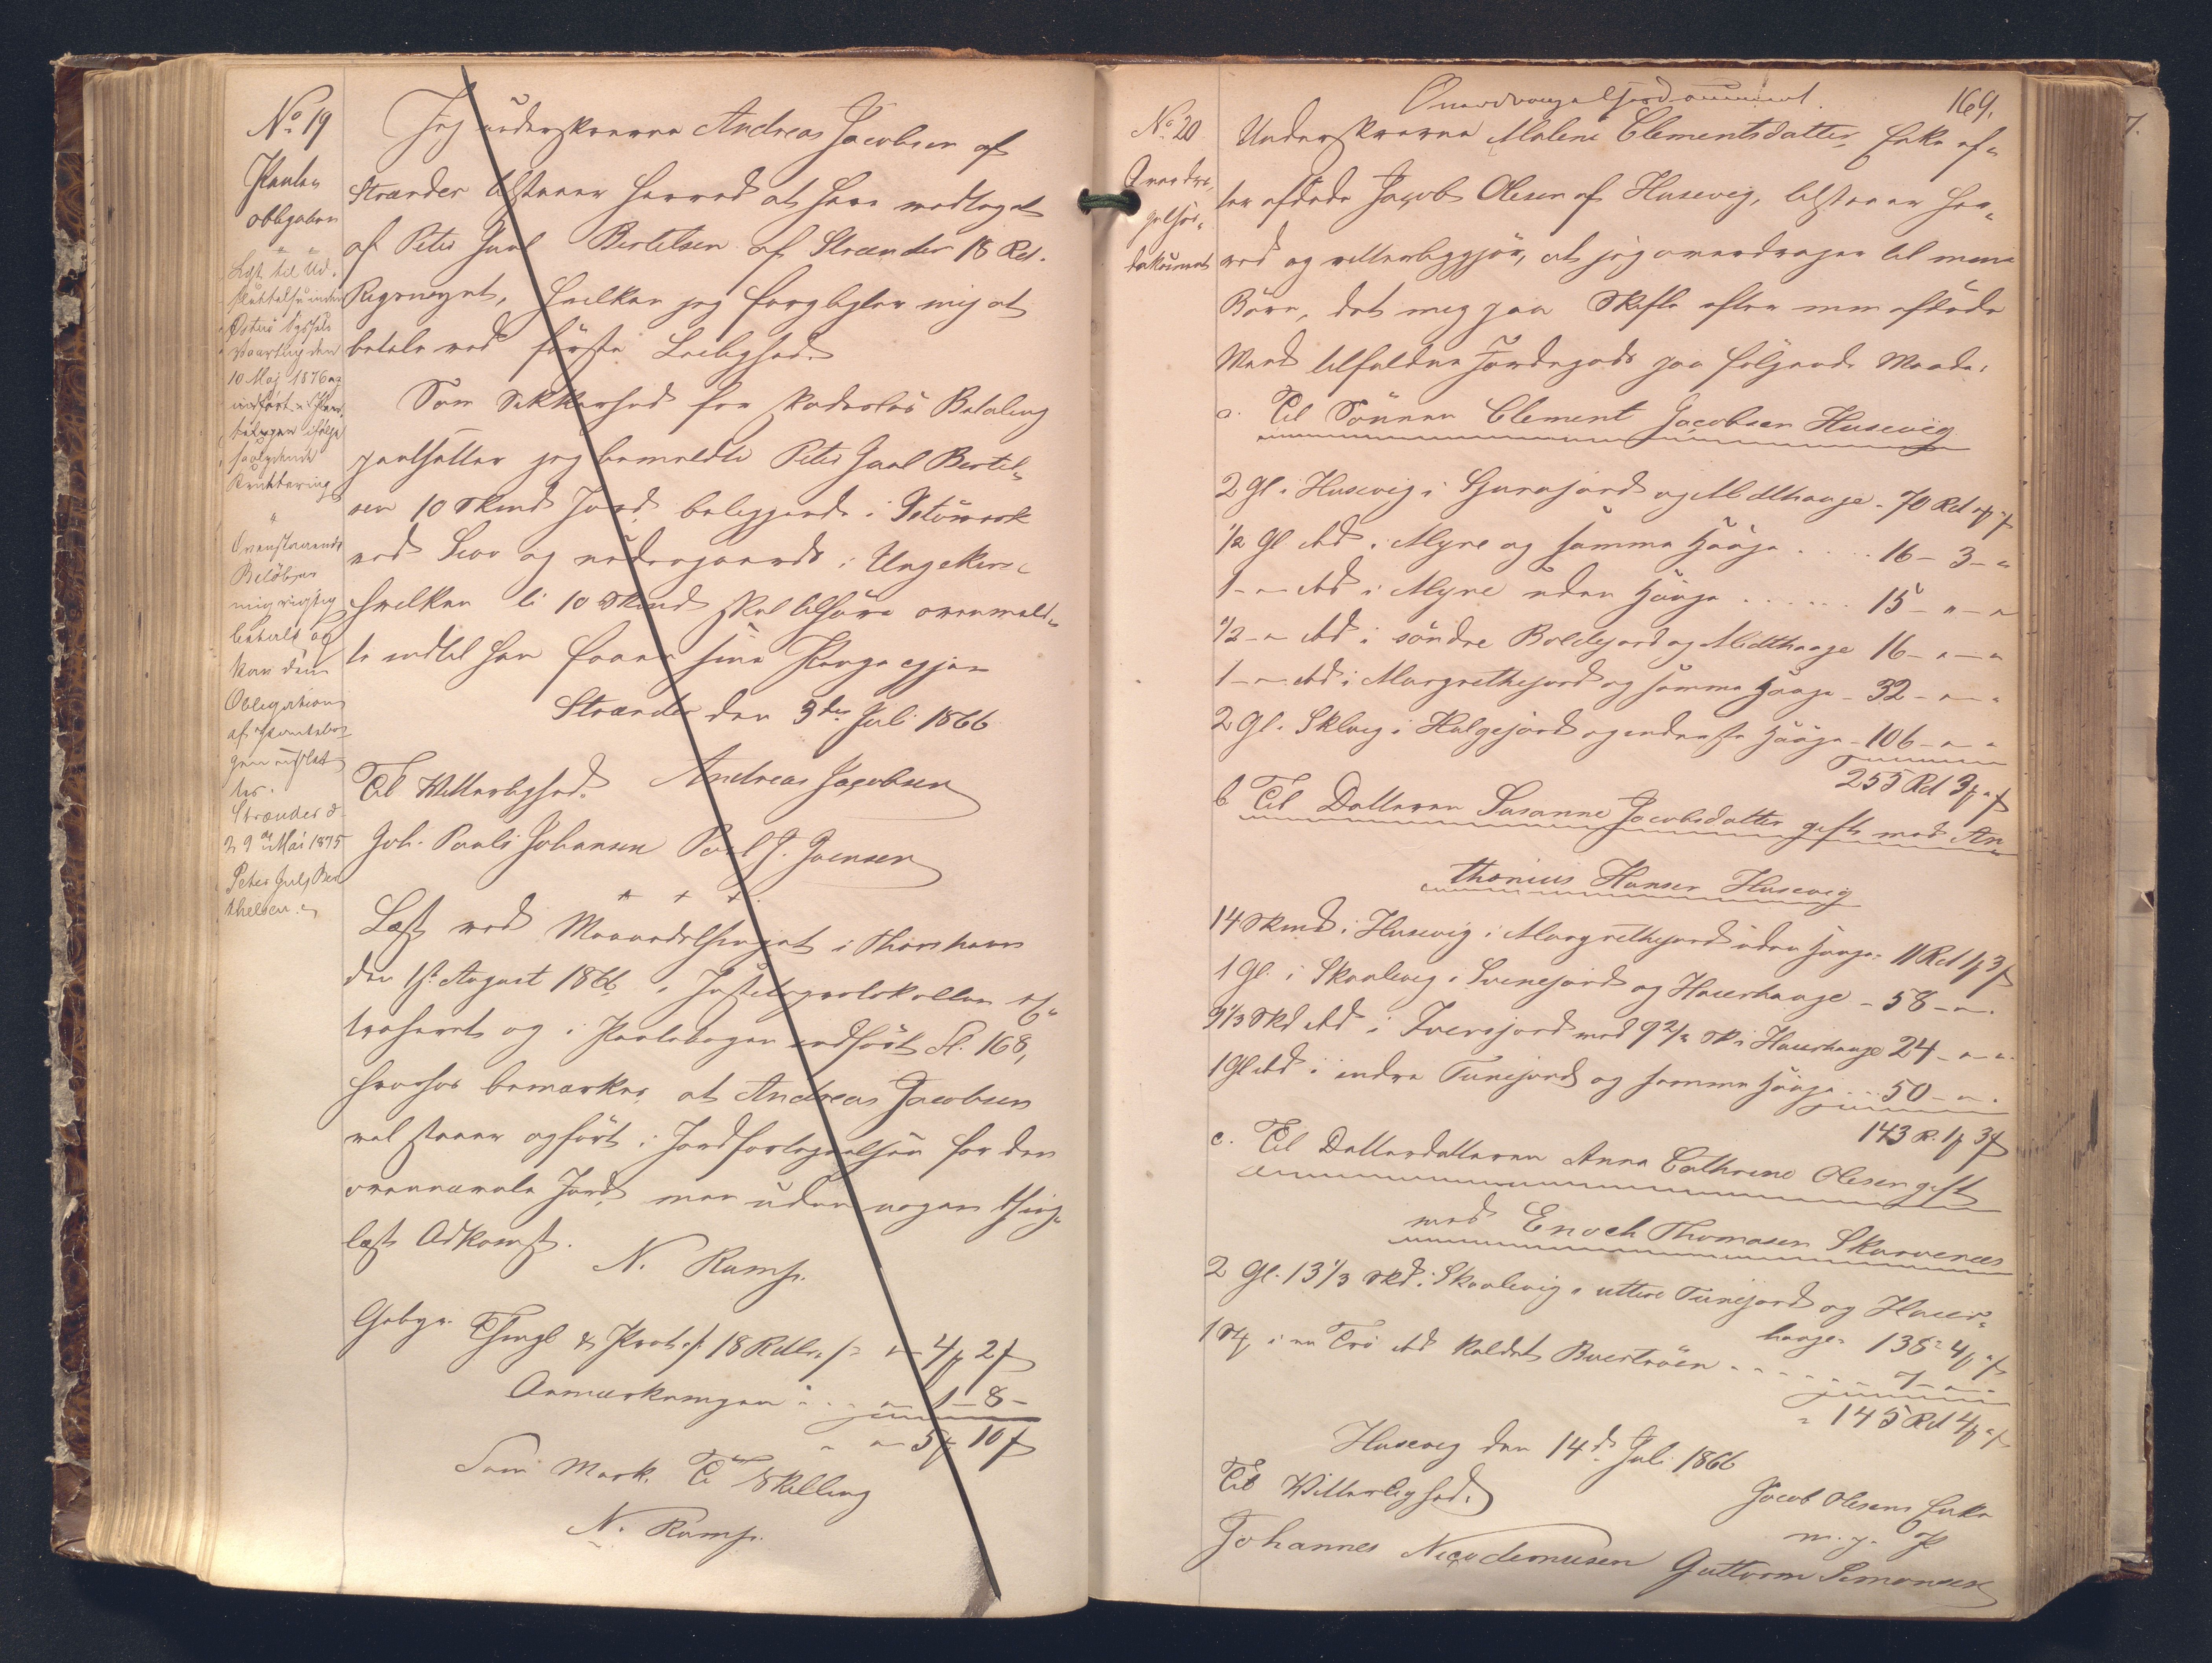 No 19
Pante
obligation
Lyst til Ud-
slettelse inden
Østerø Syssels
Vaarting den
10 Maj 1876 og
indført i Pan-
tebogen ifølge
saalydende
Kvittering
"
Ovenstaaende
Beløb er
mig rigtig
betalt og
kan denne
Obligation
af Pantebo-
gen udslet-
tes.
Strænder d.
29de Mai 1875
Peter Juul Ber
thelsen.
Jeg underskrevne Andreas Jacobsen af
Strænder tilstaaer herved at have modtaget
af Peter Juul Bertelsen af Strænder 18 Rd.
Rigsmynt, hvilken jeg forpligter mig at
betale ved første Leilighed.
Som Sikkerhed for skadeslös Betaling
pantsætter jeg bemeldte Peter Juul Bertel-
sen 10 Skind Jord beliggende i
ved og nedergaards i
hvilken ti 10 Skind skal tilhöre ovenmeld-
te indtil han faaer sine Penge igjen
Strænder den 3die Juli 1866
Til Vitterlighed. Andreas Jacobsen
Joh. Pauli Johansen Poul J. Joensen
+ + +
Læst ved Maanedsthinget i Thorshavn
den 1st August 1866, i Justitsprotokollen ex-
traheret og i Pantebogen indført Fl. 168,
hvorhos bemærkes, at Andreas Jacobsen
vel staaer opført i Jordfortegnelsen for den
ovennævnte Jord, men uden nogen thing-
læst Adkomst.
N. Rump.
Gebyr. Thingl & Prot. af 18 Rdlr. 4 2
Anmærkningen . . . 1 - 8 -
" - 5 10
Fem Mark Ti Skilling
N. Rump.
169.
Overdragelsesdocument.
No. 20
Overdra-
gelses-
dokument
Underskrevne Malene Clementsdatter, Enke ef-
ter afdøde Jacob Olesen af Husevig, tilstaaer her-
ved og vitterliggjör, at jeg overdrager til mine
Börn, det mig paa Skifte efter min afdöde
Mand tilfaldne Jordegods paa fölgende Maade:
a. Til Sönnen Clement Jacobsen Husevig
2 Gl. i Husevig i Gurajord og Midthauge - 70 Rd
1/2 Gl ibd. i Myre og samme Hauge . . . . 16 - 3 - "
1 - " ibd i Myre uden Hauge . . . . . . 15 - " - "
1/2 - " ibd i söndre Boldejord og Midthauge 16 - " - "
1 - " ibd i Margrethejord og samme Hauge - 32 - " - "
2 Gl. Sklvig i Helgejord og inderste Hauge - 106 - " "
255 Rd 3
b Til Datteren Susanne Jacobsdatter gift med An-
thonius Hansen Husevig
14 Skind i Husevig i Margrethejord uden Hauge - 11 Rd 1 3
1 Gl. i Skaalevig i Svenejord og Hauerhauge - 58 - " .
ibd i Iversjord med 9 2/3 Sk i Hauerhauge 24 - " - "
1 Gl ibd i indre Tunejord og samme Hauge . . 50 - " .
143 R. 1 3
c. Til Datterdatteren Anna Cathrine Olesen gift
med Enoch Thomasen Skarvenes
2 Gl. 13 1/3 Skd. i Skaalevig i uttere Tunejord og Hauer-
hauge 138 - 4
i en Trö ibd kaldet . . . . 7 - " -
145 Rd 4
Husevig den 14d. Juli 1866
Til Vitterlighed. Jacob Olesens Enke
m. f. P.
Johannes Nicodemusen Guttorm Simonsen